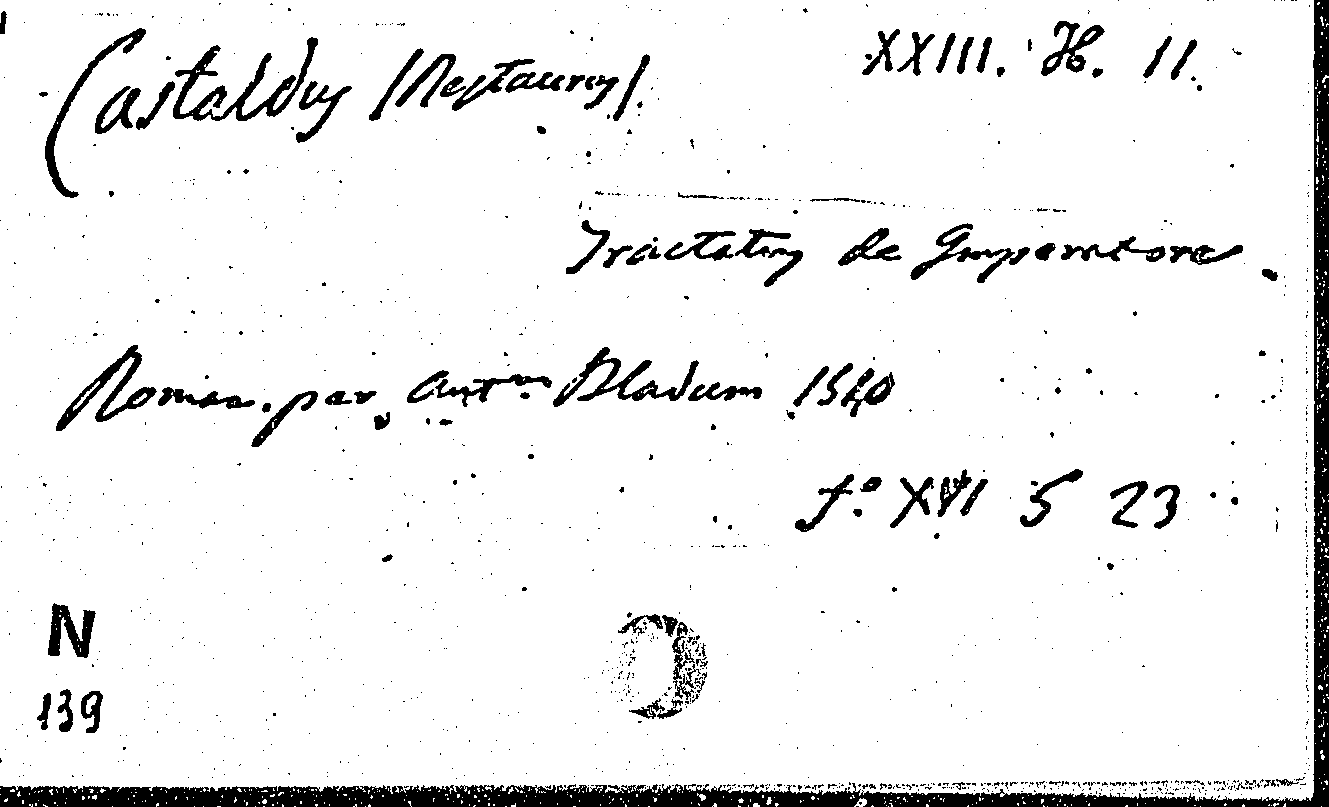 Castaldus /Restaurus/ XXIII. H. 11.
Tractatus de Imperatore.
Romae. per Ant.m Bladum 1540
f.o XVI S 23
N
139